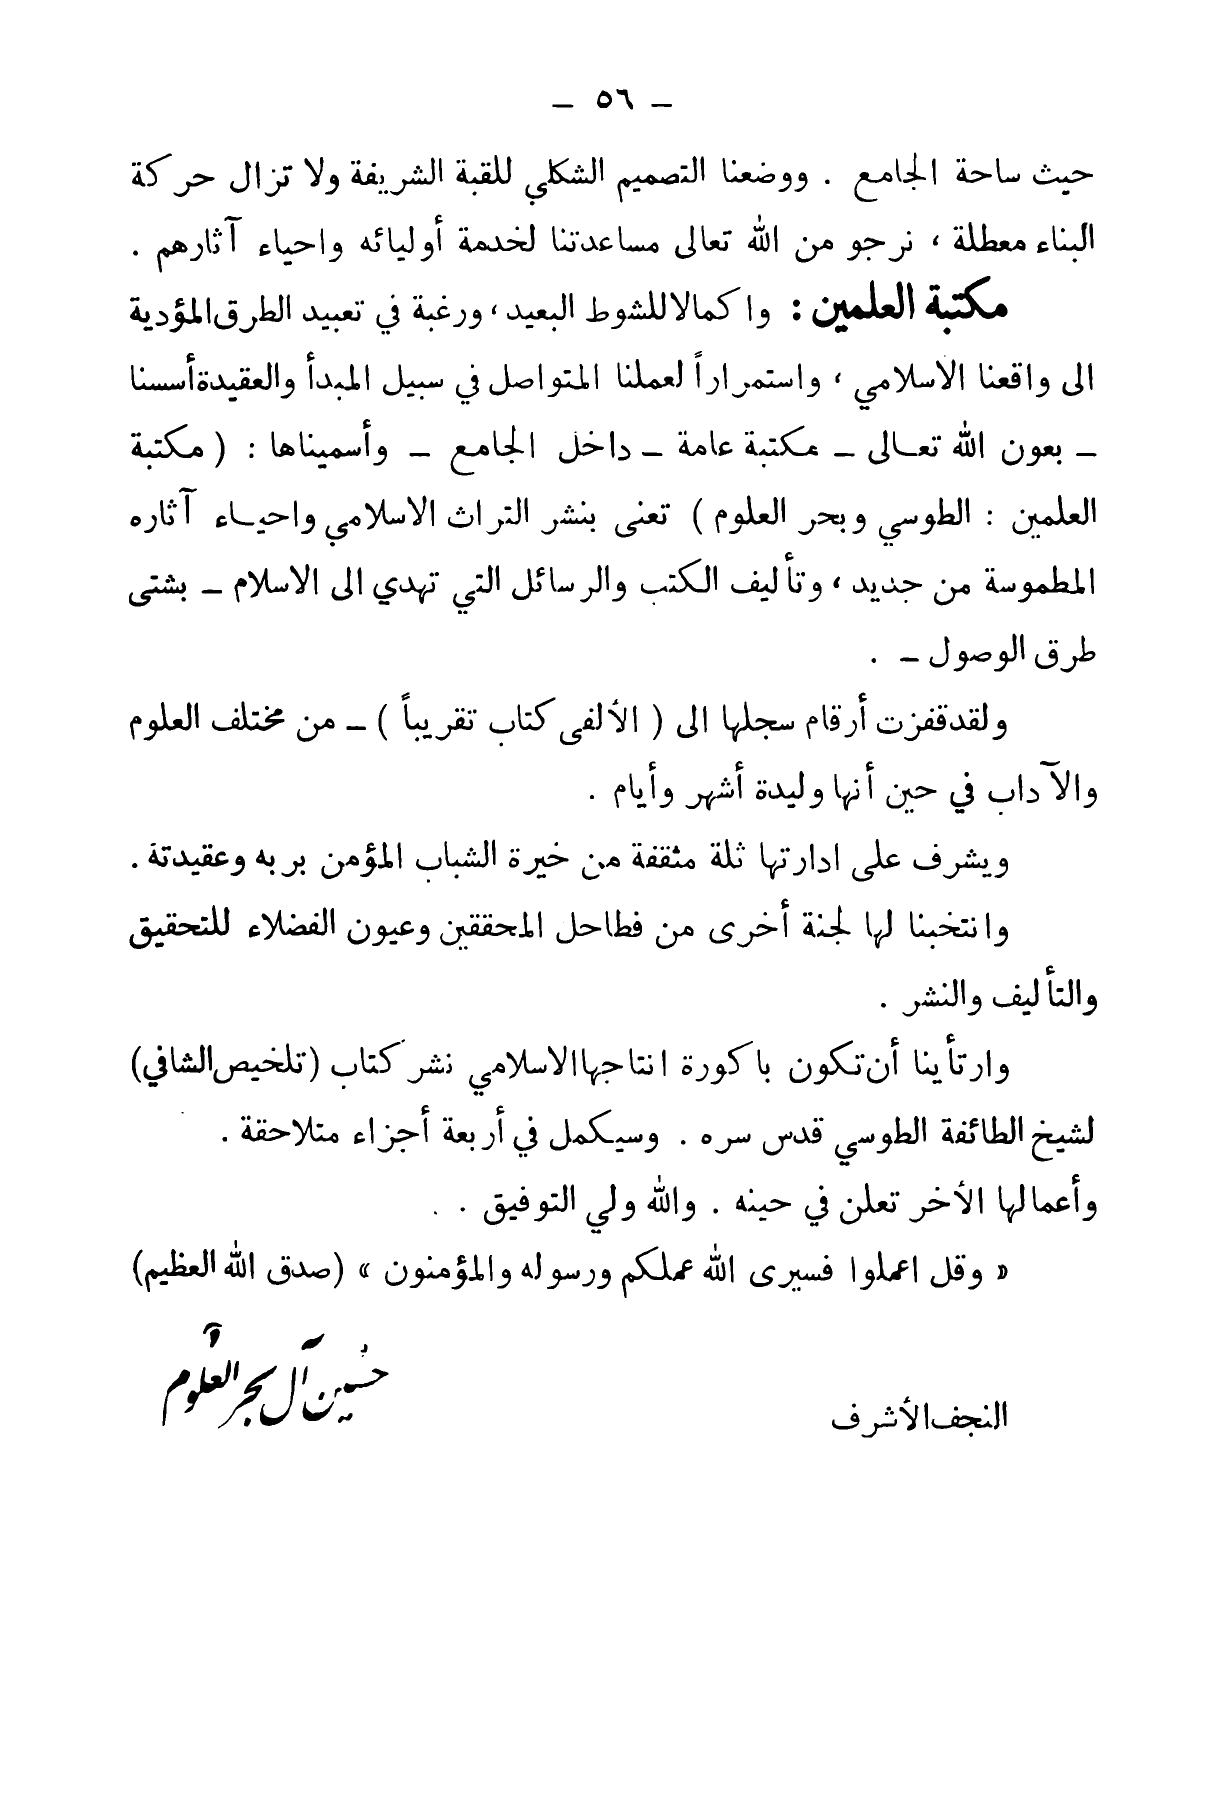 – ٥٦ –
حيث ساحة الجامع . ووضعنا التصميم الشكلي للقبة الشريفة ولا تزال حركة
البناء معطلة ، نرجو من الله تعالى مساعدتنا لخدمة أوليائه واحياء آثارهم .
مكتبة العلمين : واكمالا للشوط البعيد ، ورغبة في تعبيد الطرق المؤدية
الى واقعنا الاسلامي ، واستمراراً لعملنا المتواصل في سبيل المبدأ والعقيدة أسسنا
– بعون الله تعالى – مكتبة عامة – داخل الجامع – وأسميناها : ( مكتبة
العلمين : الطوسي وبحر العلوم ) تعنى بنشر التراث الاسلامي واحياء آثاره
المطموسة من جديد ، وتأليف الكتب والرسائل التي تهدي الى الاسلام – بشتى
طرق الوصول – .
ولقد قفزت أرقام سجلها الى ( الألفى كتاب تقريباً ) – من مختلف العلوم
والآداب في حين أنها وليدة أشهر وأيام .
ويشرف على ادارتها ثلة مثقفة من خيرة الشباب المؤمن بربه وعقيدتة .
وانتخبنا لها لجنة أخرى من فطاحل المحققين وعيون الفضلاء للتحقيق
والتأليف والنشر .
وارتأينا أن تكون باكورة انتاجها الاسلامي نشر كتاب (تلخيص الشافي)
لشيخ الطائفة الطوسي قدس سره . وسيكمل في أربعة أجزاء متلاحقة .
وأعمالها الأخر تعلن في حينه . والله ولي التوفيق .
« وقل اعملوا فسيرى الله عملكم ورسوله والمؤمنون » (صدق الله العظيم)
حسين آل بحر العلوم
النجف الأشرف